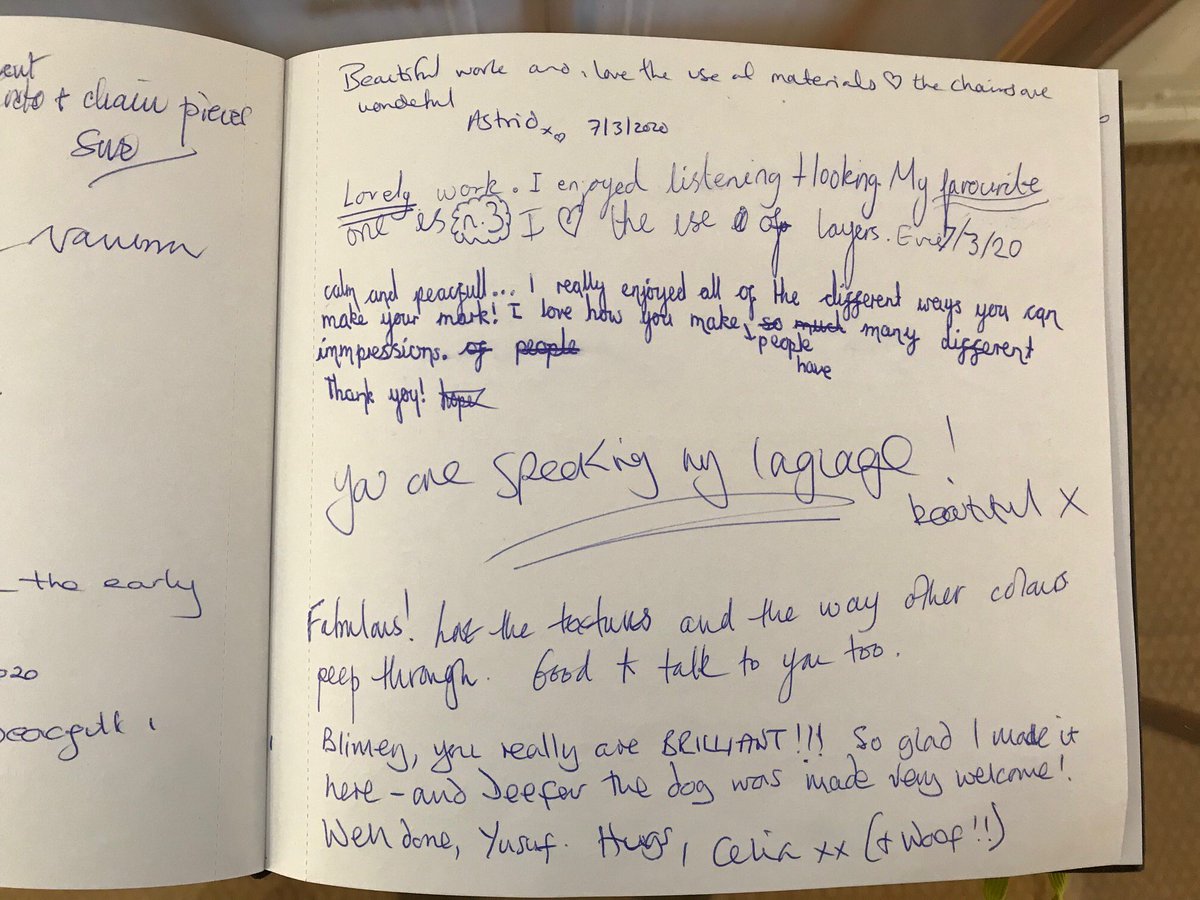 + chain pieces
Sue
Vanessa
the early
2020
peacfull
Beautiful work and i love the use of materials ♡ the chairs are
wondeful
Astrid x♡ 7/3/2020
Lovely work. I enjoyed listening + looking. My favourite
one is n.3 I ♡ the use of layers. Eve 7/3/20
calm and peacfull... I really enjoyed all of the different ways you can
make your mark! I love how you make so much many different
people have
immpressions. of people
Thank you! hope
You are speaking my laguage!
beautiful X
Fabulous! Love the textures and the way other colours
peep through. Good to talk to you too.
Blimey, you really are BRILLIANT!!! So glad I made it
here - and Deefer the dog was made very welcome!
Well done, Yusuf. Hugs, Celia xx (+ Woof!!)